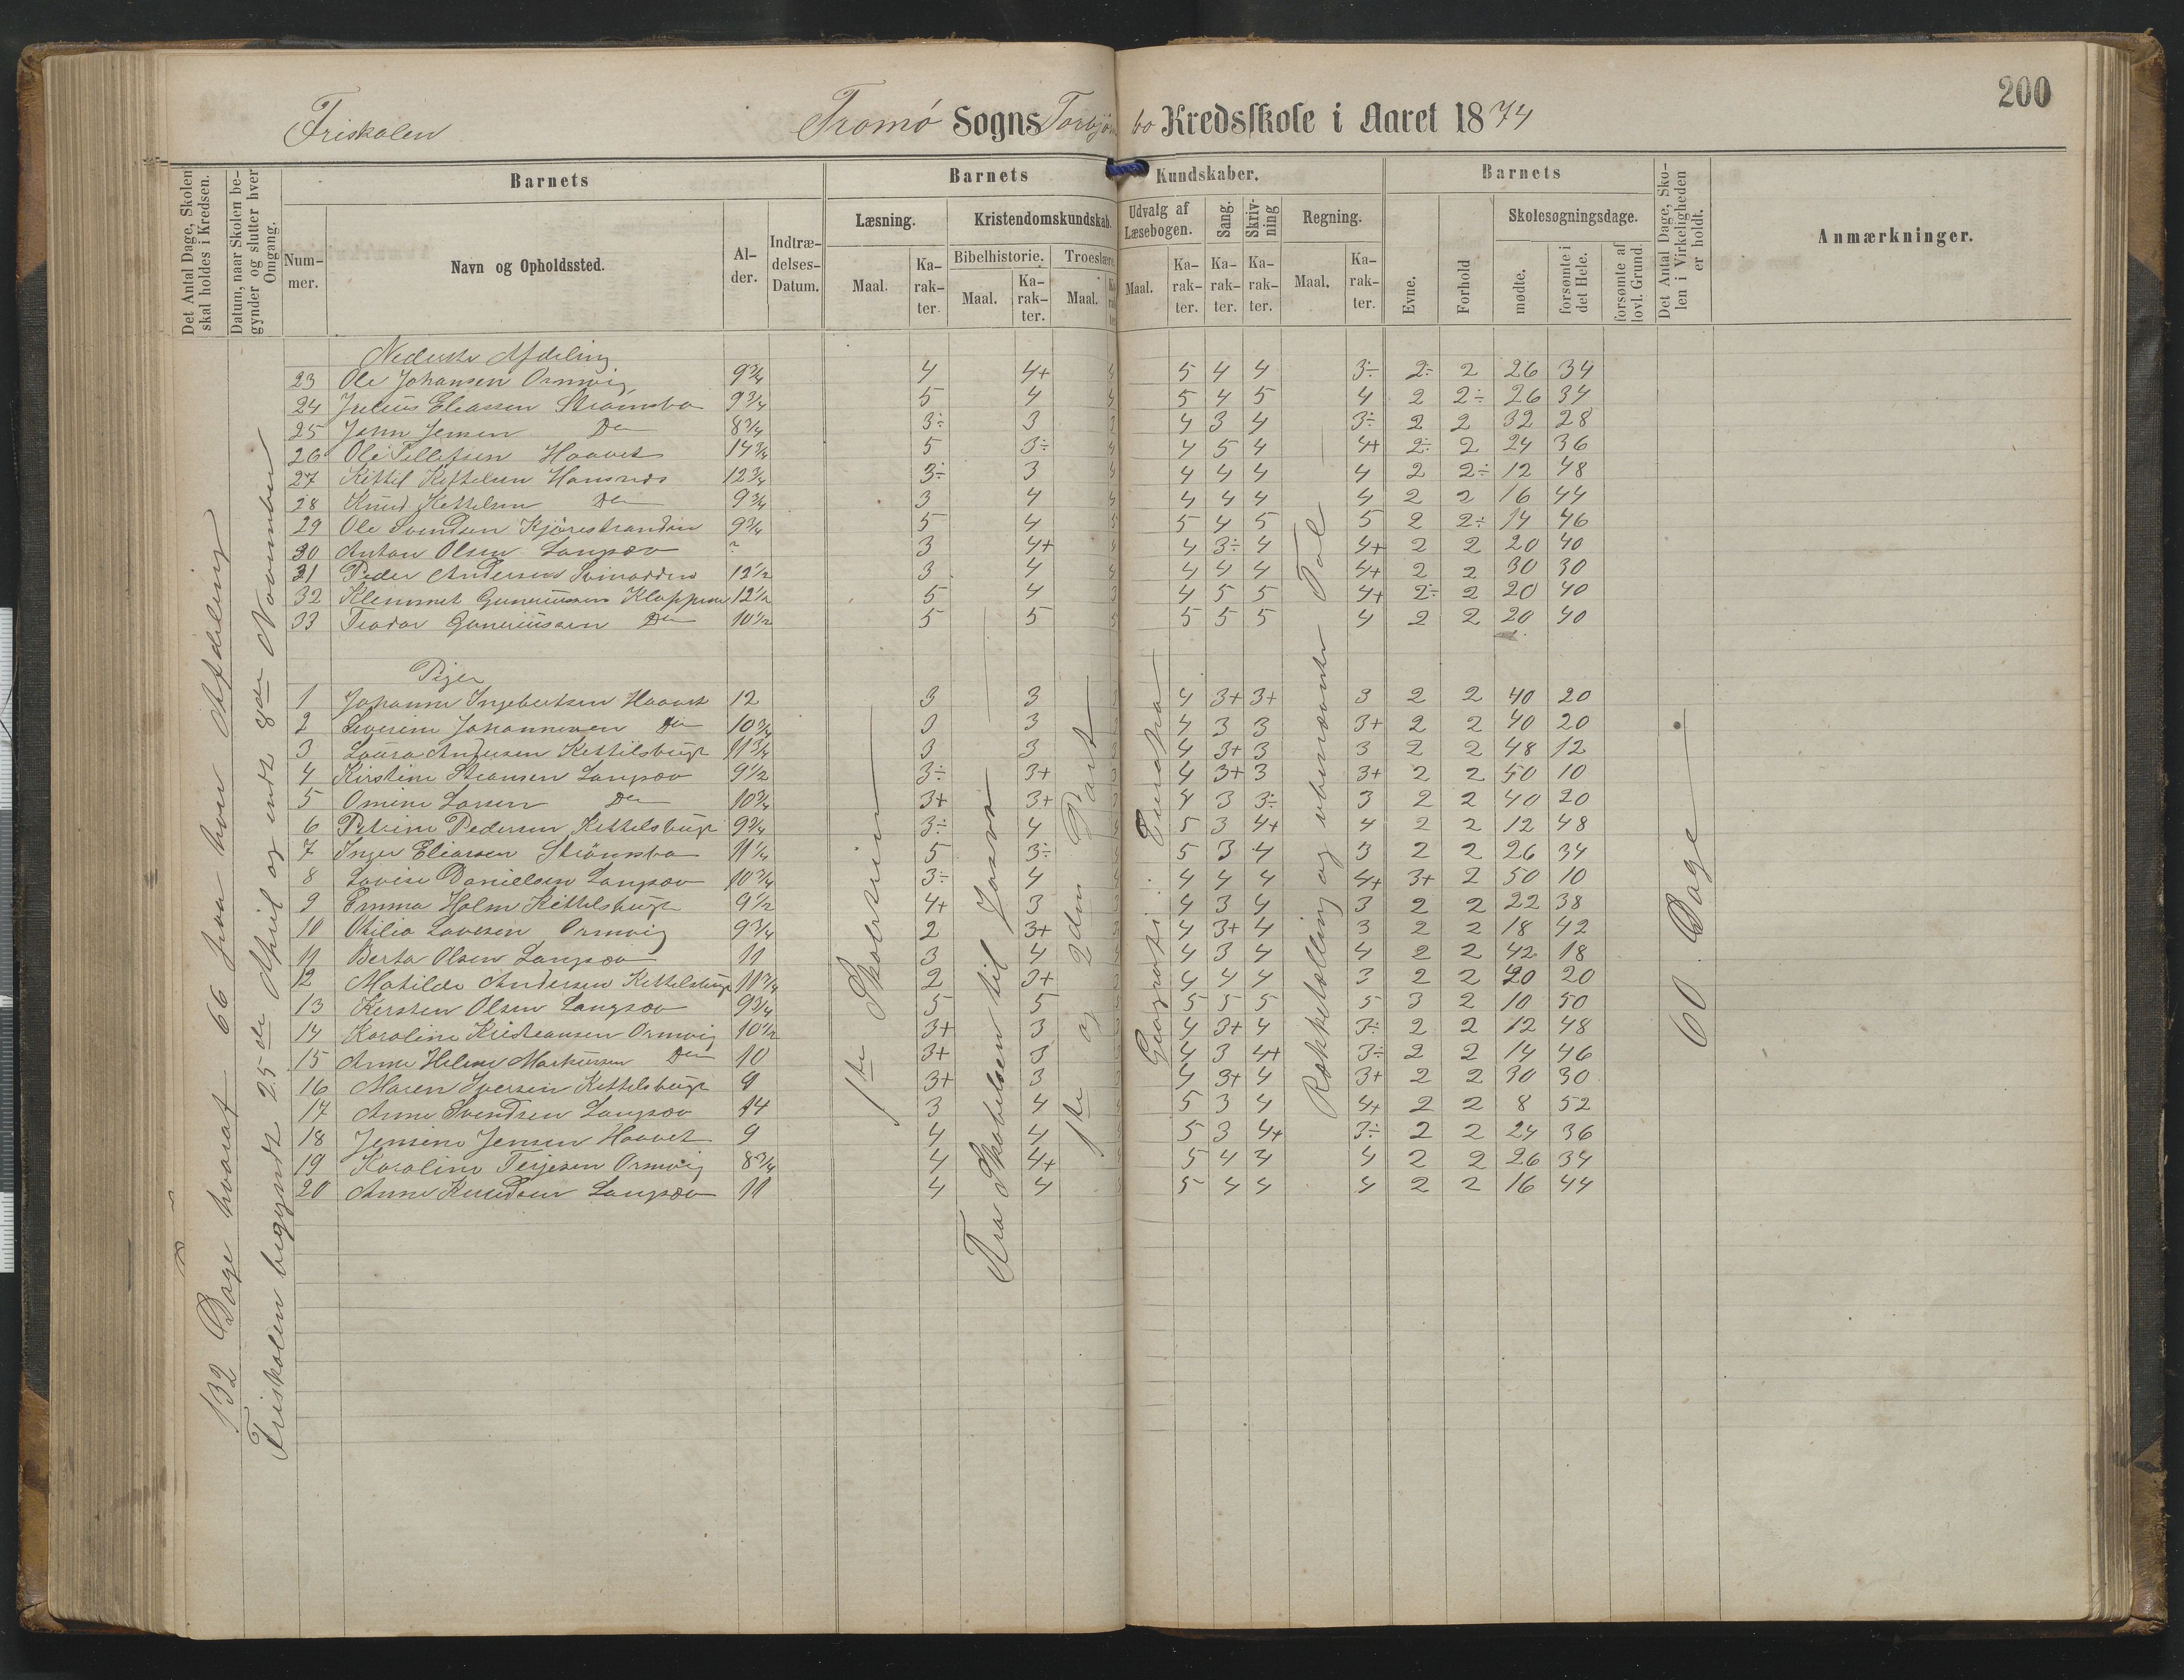 200
Friskolen Tromø Sogns Torbjørnsbo Kredsskole i Aaret 1874
Det Antal Dage, Skolen skal holdes i Kredsen.
Datum, naar Skolen begynder og slutter hver Omgang.
Barnets
Nummer.
Navn og Opholdssted.
Alder.
Indtrædelses-Datum.
Barnets Kundskaber.
Læsning.
Maal.
Karakter.
Kristendomskundskab.
Bibelhistorie.
Maal.
Karakter.
Troeslære.
Maal.
Udvalg af Læsebogen.
Maal.
Karakter.
Sang.
Karakter.
Skrivning
Karakter.
Regning.
Maal.
Karakter.
Barnets
Evne.
Forhold
Skolesøgningsdage.
mødte.
forsømte i det Hele.
forsømte af lovl. Grund.
Det Antal Dage, Skolen i Virkeligheden er holdt.
Anmærkninger.
132 Dage hvoraf 66 paa hver Afdeling
Friskolen begyndt 25de April og endt 8de November
Nederste Afdeling
23 Ole Johansen Ormvig 9 3/4 4 4+ 5 4 4 3÷ 2÷ 2 26 34
24 Julius Eliassen Strømsbo 9 3/4 5 4 5 4 5 4 2 2÷ 26 34
25 John Jensen Do 8 3/4 3÷ 3 4 3 4 3÷ 2 2 32 28
26 Ole Tellefsen Haavet 14 3/4 5 3÷ 4 5 4 4+ 2÷ 2 24 36
27 Kittil Kittelsen 12 3/4 3÷ 3 4 4 4 4 2 2÷ 12 48
28 Knud Kettelsen Do 9 3/4 3 4 4 4 4 4 2 2 16 44
29 Ole Svendsen Kjørestranden 9 3/4 5 4 5 4 5 5 2 2÷ 14 46
30 Anton Olsen Langsæv ? 3 4+ 4 3÷ 4 4+ 2 2 20 40
31 Peder Andersen Svinodden 12 1/2 3 4 4 4 4 4+ 2 2 30 30
32 Klemmet Gunerussen Kloppene 12 1/2 5 4 4 5 5 4+ 2÷ 2 20 40
33 Teodor Guneriussen Do 10 1/2 5 5 5 5 5 4 2 2 20 40
Piger
1 Johanne Ingebertsen Haavet 12 3 3 4 3+ 3+ 3 2 2 40 20
2 Severine Johannesen Do 10 3/4 3 3 4 3 3 3+ 2 2 40 20
3 Laura Andersen Kettilsbugt 11 3/4 3 3 4 3+ 3 3 2 2 48 12
4 Kirstine Steansen Langsæv 9 1/2 3÷ 3+ 4 3+ 3 3+ 2 2 50 10
5 Omine Larsen Do 10 3/4 3+ 3+ 4 3 3÷ 3 2 2 40 20
6 Petrine Pedersen Kettelsbugt 9 3/4 3÷ 4 5 3 4+ 4 2 2 12 48
7 Inger Eliassen Strømsbo 11 1/4 5 3÷ 5 3 4 3 2 2 26 34
8 Lovise Danielsen Langsæv 10 3/4 3÷ 4 4 4 4 4+ 3+ 2 50 10
9 Emma Holm Kittelsbugt 9 1/2 4+ 3 4 3 4 3 2 2 22 38
10 Otilia Lovesen Ormvig 9 3/4 2 3+ 4 3+ 4 3 2 2 18 42
11 Berta Olsen Langsæv 11 3 4 4 3 4 4 2 2 42 18
12 Matilde Andersen Kettelsbugt 11 3/4 2 3+ 4 4 4 3 2 2 40 20
13 Kersten Olsen Langsæv 9 3/4 5 5 5 5 5 5 3 2 10 50
14 Karoline Kristeansen Ormvig 10 1/2 3+ 3 4 3+ 4 3÷ 2 2 12 48
15 Anne Helene Markussen Do 10 3+ 3 4 3 4+ 3÷ 2 2 14 46
16 Maren Iversen Kettelsbugt 9 3+ 3 4 3+ 4 3+ 2 2 30 30
17 Anne Svendsen Langsæv 14 3 4 5 3 4 4+ 2 2 8 52
18 Jensine Jensen Haavet 9 4 4 5 3 4+ 3÷ 2 2 24 36
19 Karoline Terjesen Ormvig 8 3/4 4 4+ 5 4 4 4 2 2 26 34
20 Anne Knudsen Langsæv 11 4 4 5 4 4 4 2 2 16 44
1ste Skoletrin
Fra Skabelsen til Josva
1ste og 2den Part
Geografi: Europa
Rækketælling og ubenævnte Tal
60 Dage